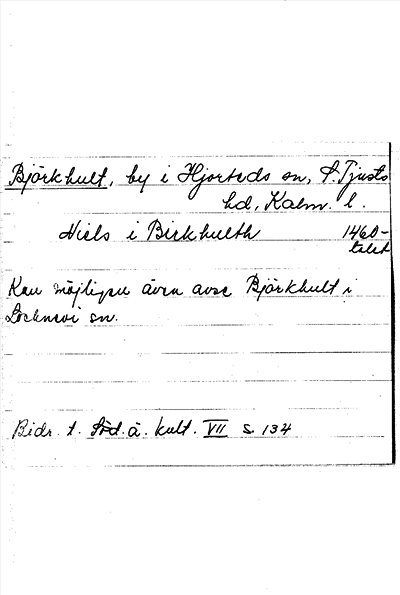 Björkhult, by i Hjorteds sn, S. Tjusts
hd, Kalm. l.
Niels i Birkhulth 1460-
talet
Kan möjligen även avse Björkhult i
Locknevi sn.
Bidr. t. Söd. ä. kult. VII s. 134